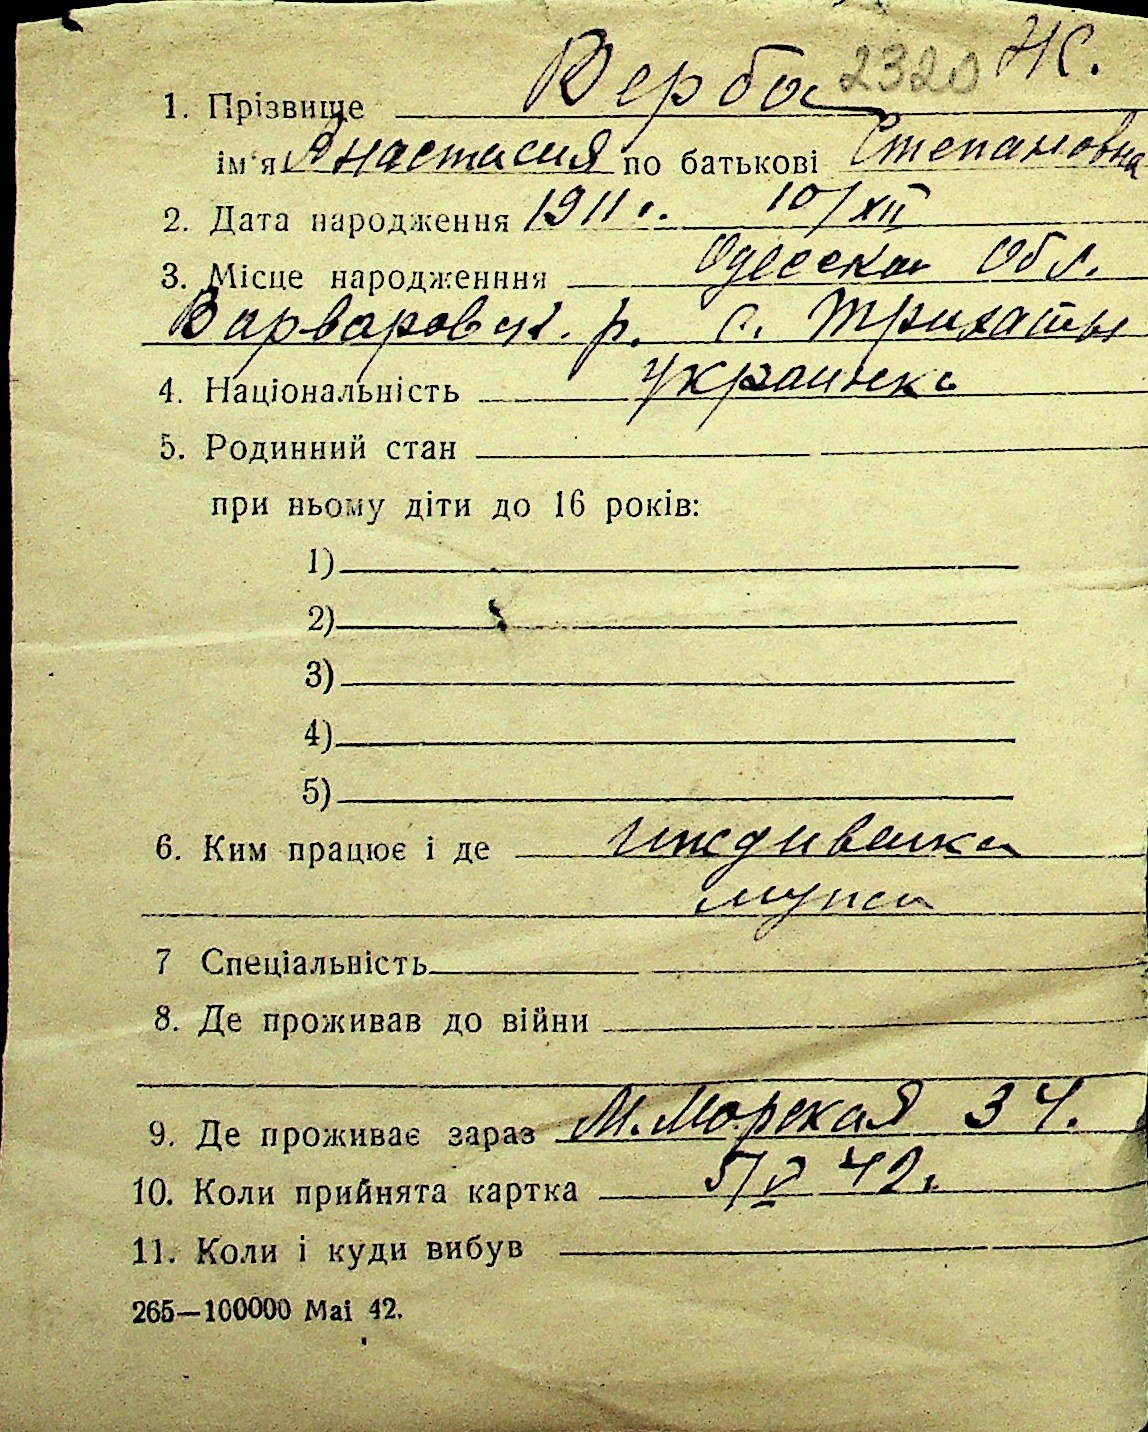 2320 Ж.
1. Прізвище Верба
ім'я Анастасия по батькові Степановна
2. Дата народження 1911 г. 10/XII
3. Місце народженння Одесская Обл.
Варваровск. р. с. Трихаты
4. Національність Украинка
5. Родинний стан
при ньому діти до 16 років:
1)
2)
3)
4)
5)
6. Ким працює і де иждивенка
мужа
7 Спеціальність
8. Де проживав до війни
9. Де проживає зараз М. Морская 34.
10. Коли прийнята картка 5/V 42 г.
11. Коли і куди вибув
265—100000 Mai 42.